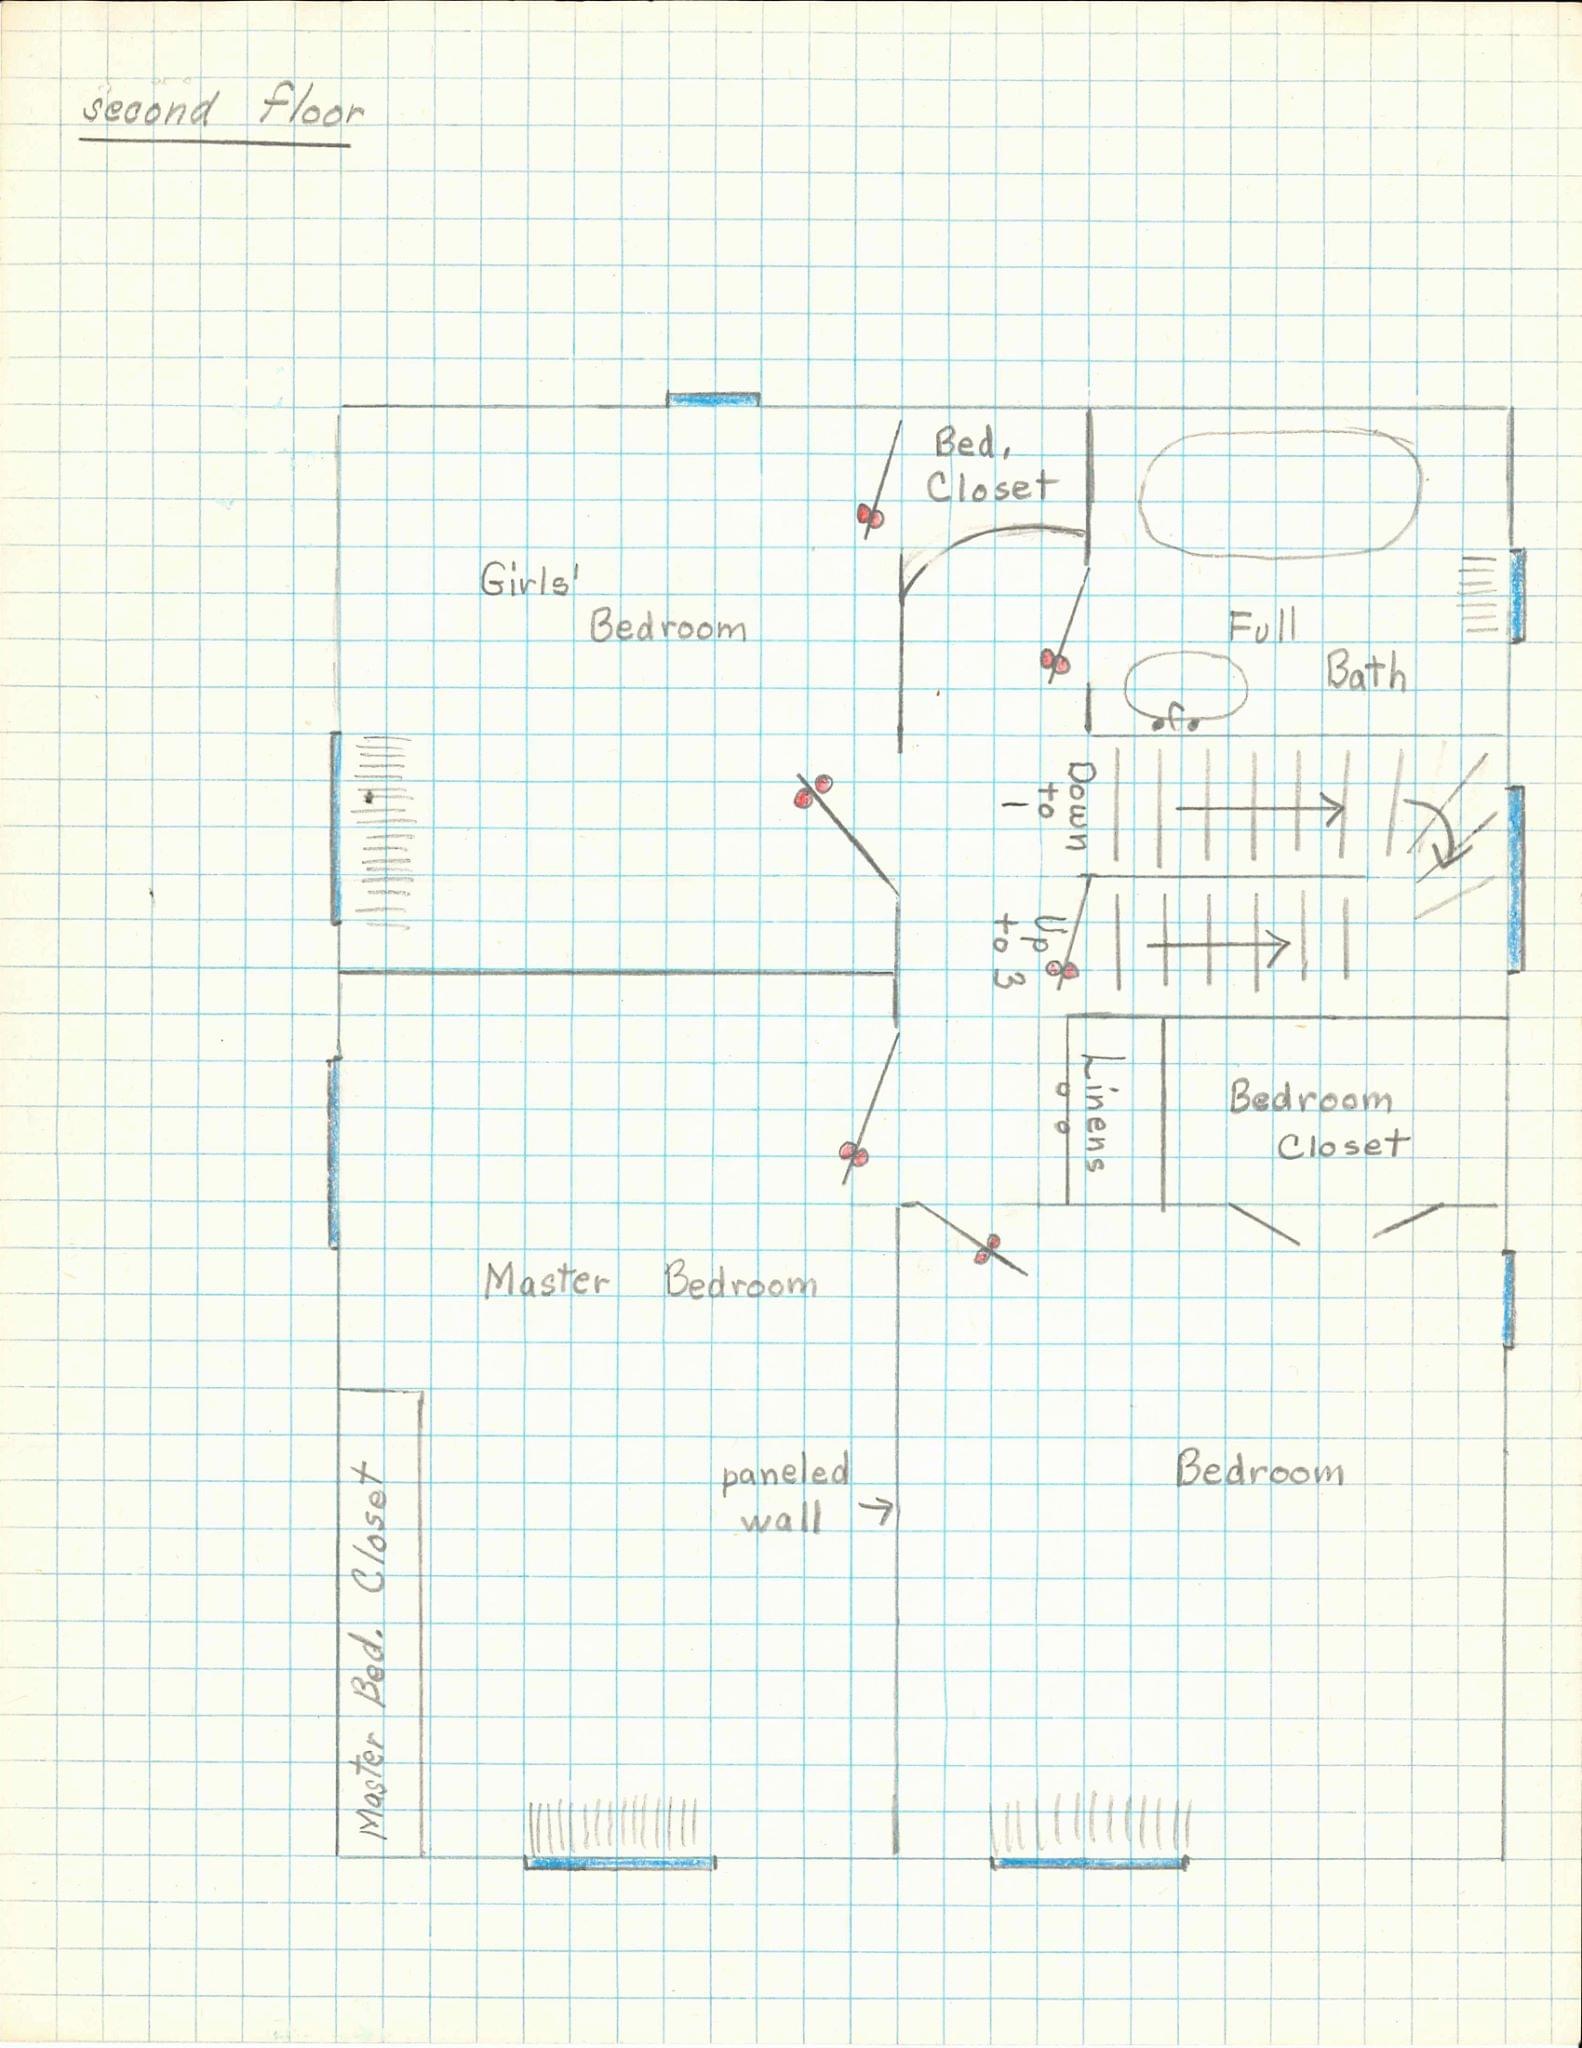 second floor
Bed.
Closet
Girls'
Bedroom
Full
Bath
Down
to
1
Up
to 3
Linens
Bedroom
Closet
Master Bedroom
paneled
wall →
Bedroom
Master Bed. Closet